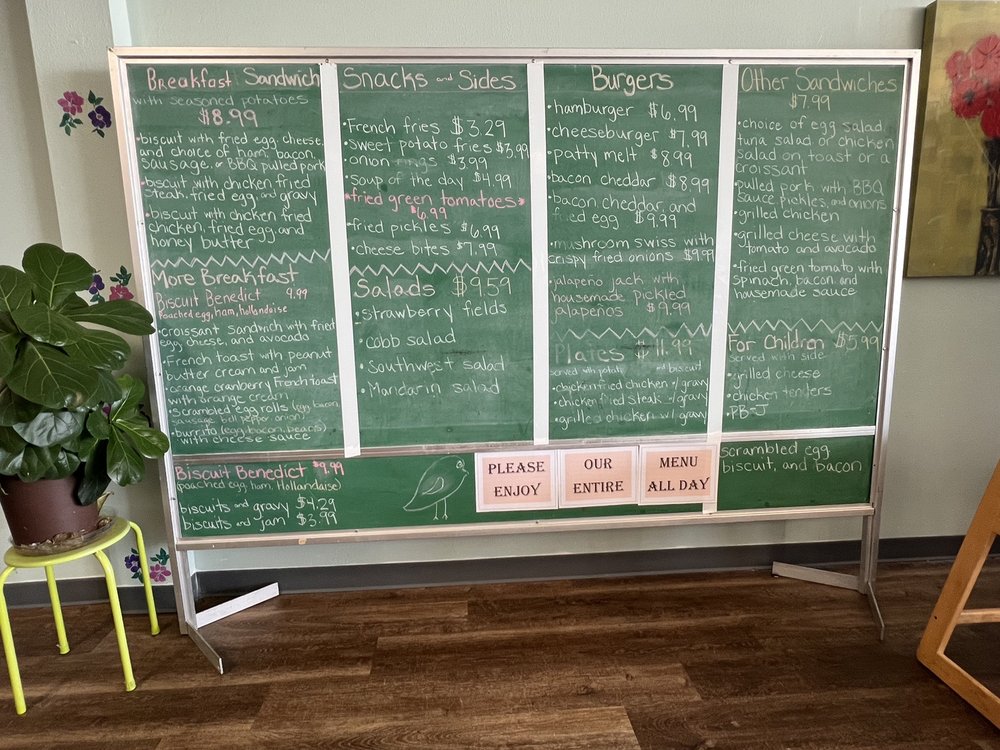 Breakfast Sandwich
with seasoned potatoes
$8.99
•biscuit with fried egg, cheese,
and choice of ham, bacon,
sausage, or BBQ pulled pork
•biscuit with chicken fried
steak, fried egg, and gravy
•biscuit with chicken fried
chicken, fried egg, and
honey butter
More Breakfast
Biscuit Benedict 9.99
Poached egg, ham, hollandaise
•croissant sandwich with fried
egg, cheese, and avocado
•French toast with peanut
butter cream and jam
•orange cranberry French toast
with orange cream
•scrambled egg rolls (egg, bacon,
sausage, bell pepper, onion)
•burrito (egg, bacon, beans)
with cheese sauce
Biscuit Benedict $9.99
(poached egg, ham, Hollandaise)
biscuits and gravy $4.29
biscuits and jam $3.99
Snacks and Sides
•French fries $3.29
•sweet potato fries $3.99
•onion rings $3.99
•soup of the day $4.99
*fried green tomatoes*
$6.99
•fried pickles $6.99
•cheese bites $7.99
Salads $9.59
•strawberry fields
•cobb salad
•Southwest salad
•Mandarin salad
Burgers
•hamburger $6.99
•cheeseburger $7.99
•patty melt $8.99
•bacon cheddar $8.99
•bacon cheddar, and
fried egg $9.99
•mushroom swiss with
crispy fried onions $9.99
•jalapeño jack with
housemade pickled
jalapeños $9.99
Plates $11.99
served with potato and biscuit
•chicken fried chicken w/gravy
•chicken fried steak w/gravy
•grilled chicken w/gravy
Other Sandwiches
$7.99
•choice of egg salad,
tuna salad or chicken
salad on, toast or a
croissant
•pulled pork with BBQ
sauce, pickles, and onions
•grilled chicken
•grilled cheese with
tomato and avocado
•fried green tomato with
spinach, bacon, and
housemade sauce
For Children $5.99
served with side
•grilled cheese
•chicken tenders
•PB-J
scrambled egg
biscuit, and bacon
PLEASE
ENJOY
OUR
ENTIRE
MENU
ALL DAY